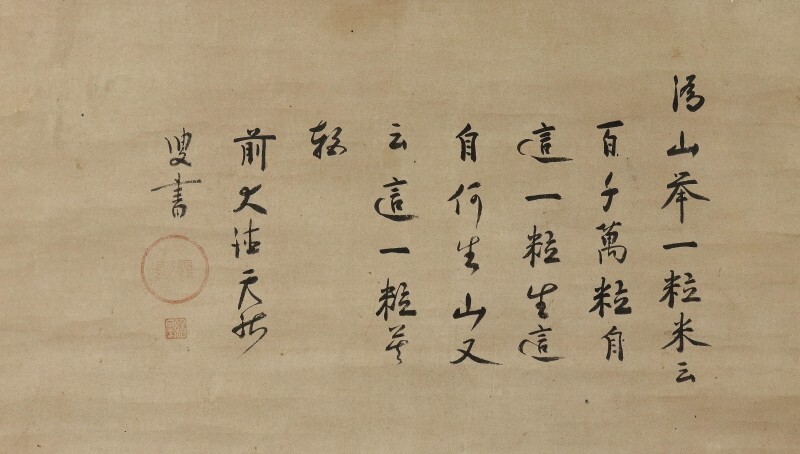 潙山挙一粒米云
百千萬粒自
這一粒生這
自何生山又
云這一粒莫
軽
前大
叟書